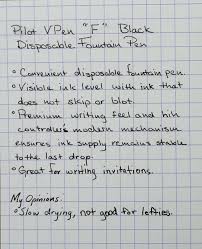 Pilot VPen "F" Black
Disposable Fountain Pen
° Convenient disposable fountain pen.
° Visible ink level with ink that
does not skip or blot.
° Premium writing feel and
controlled modern mechanism
ensures ink supply remains stable
to the last drop.
° Great for writing invitations.
My Opinions:
° Slow drying, not good for lefties.